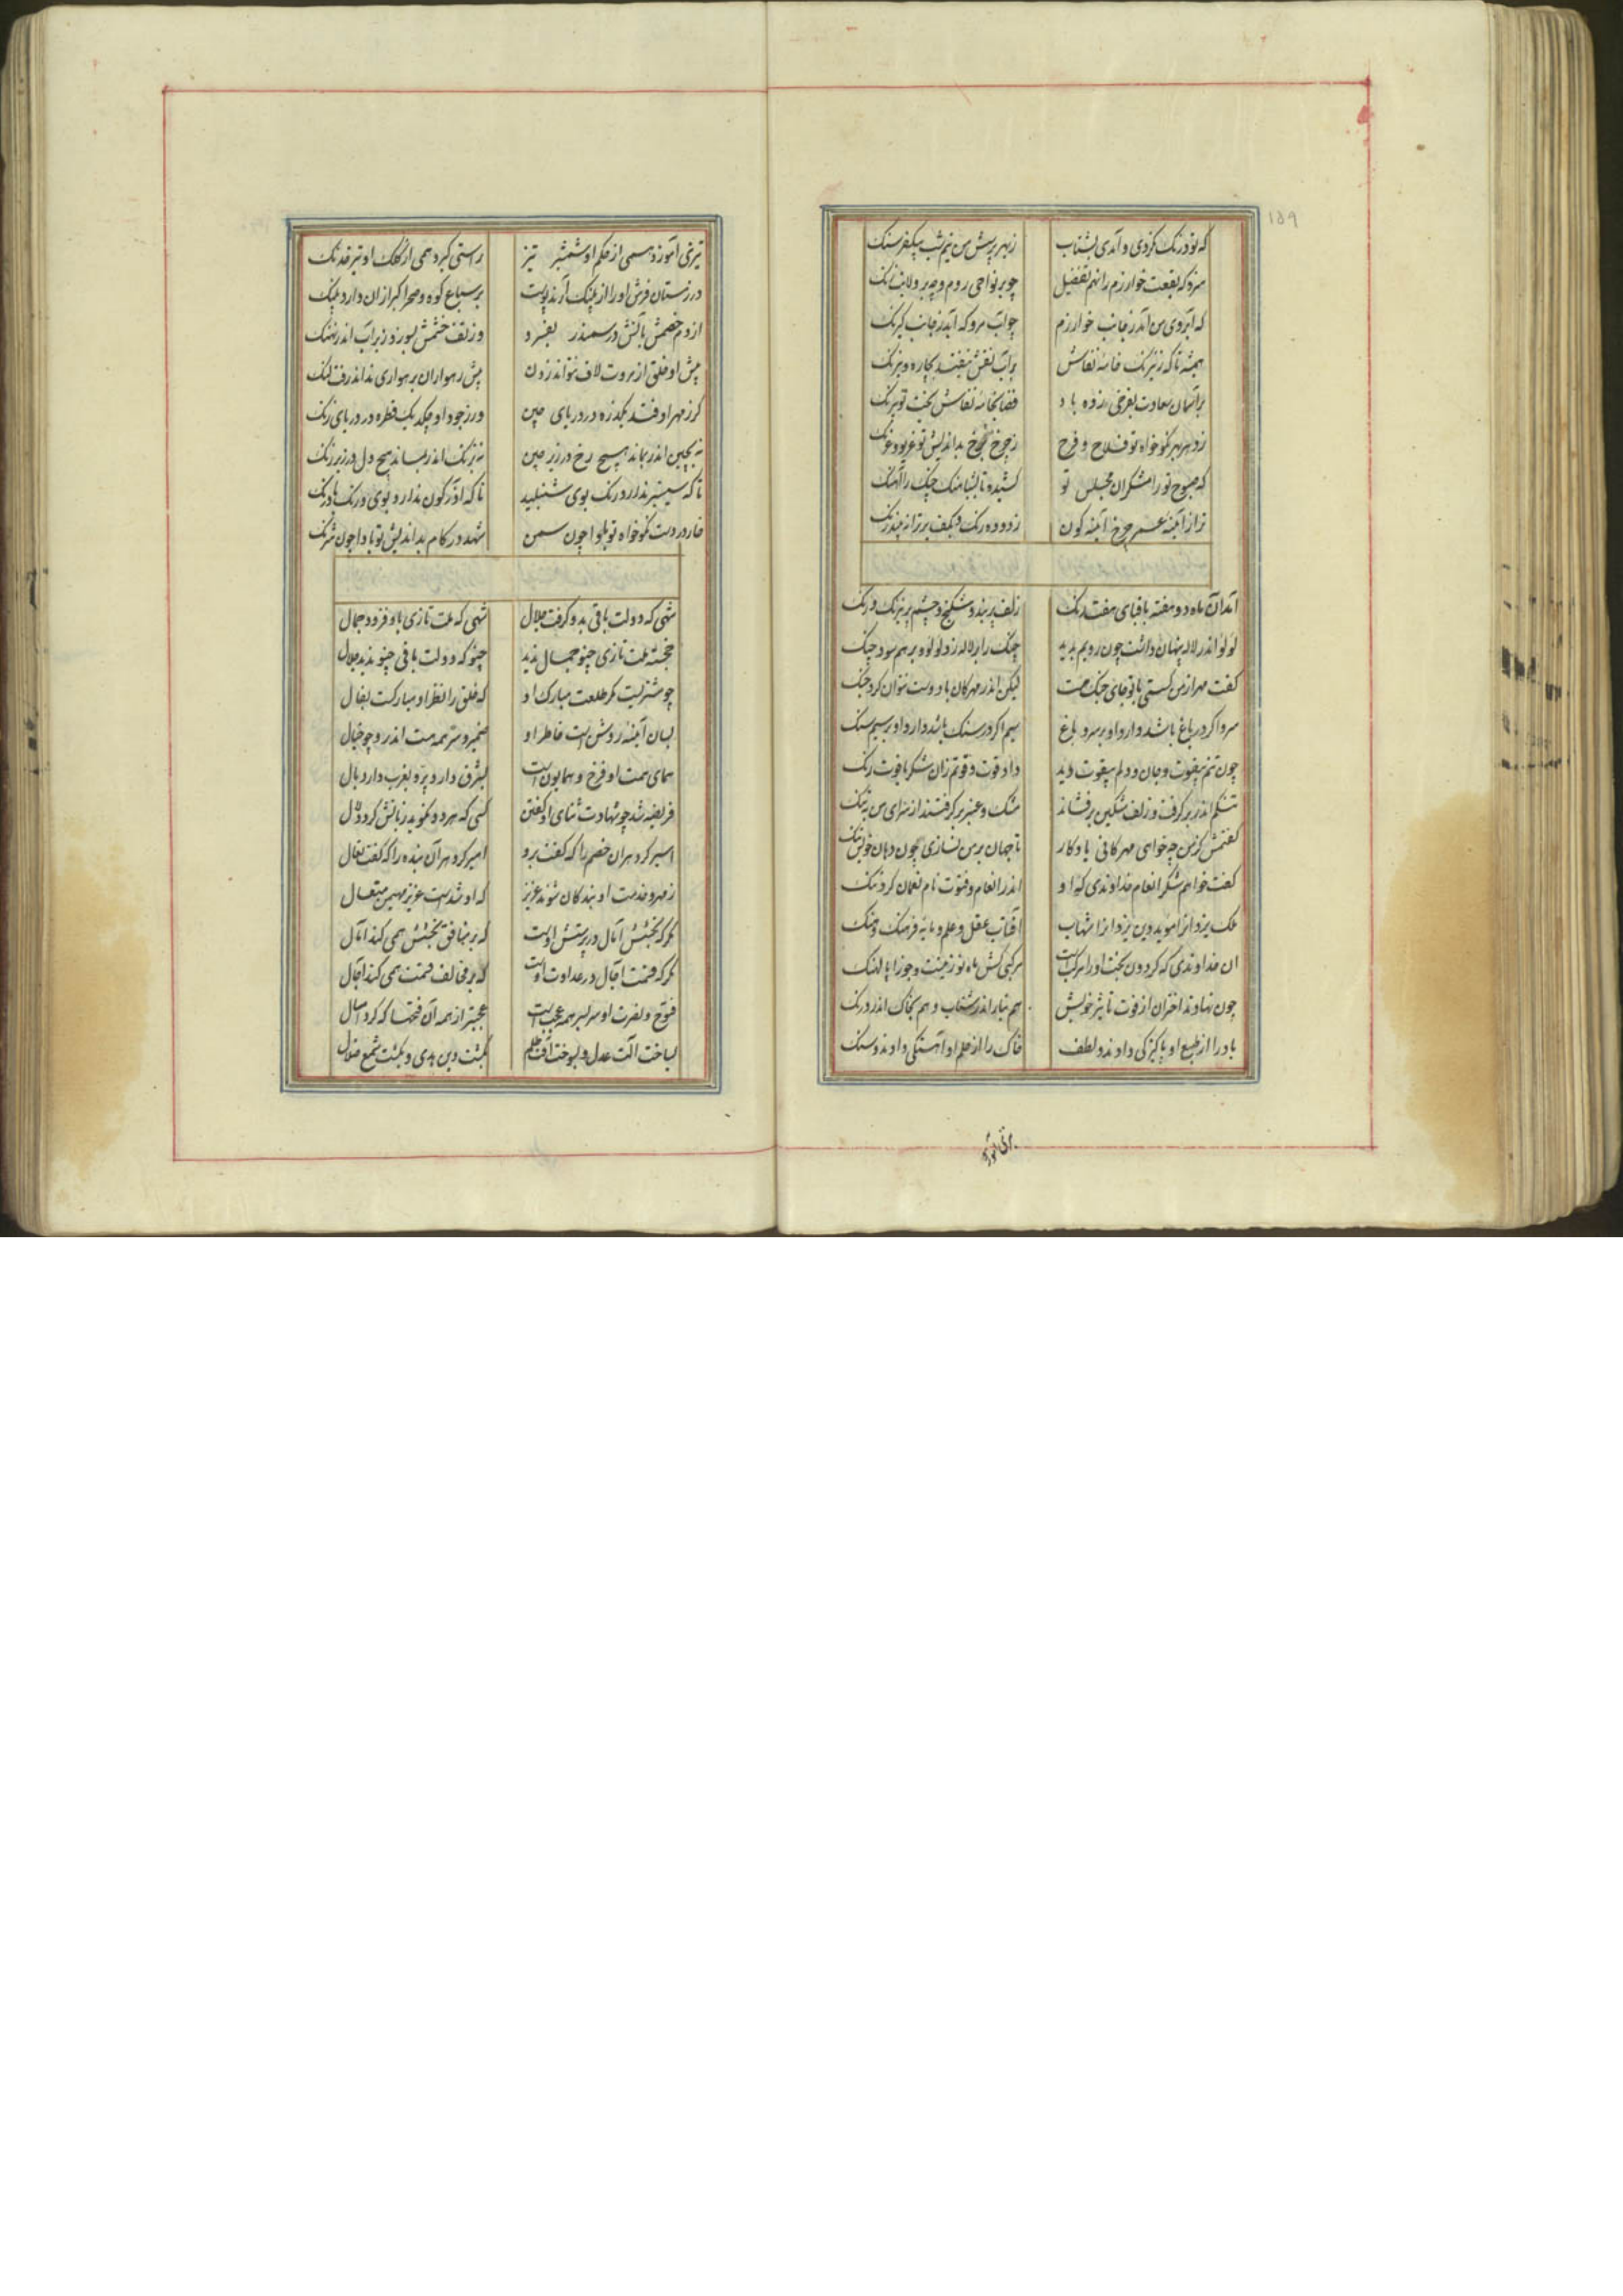 ۱۵۹
که تو درنک کردی و آمدی بشتاب زبهر پرسش من نیم شب بیکفرسنک
سزد که بقعت خوارزم را نهم تفضیل چو بر نواحی روم و چه بر ولایت زنک
که ابروی من آمد ز جانب خوارزم چو آب مرو که آید ز جانب کیرنک
همیشه تا که ز نیرنک خامه نقاش برآب نقش نیفتد بچاره و نیرنک
بر آسمان سعادت بفرخی زده باد قضا بخامه نقاش بخت تو نیرنک
زدهر بهر نکوخواه تو فلاح و فرح ز چرخ بداندیش تو غریو و غرنک
که صبوح تو رامشکران مجلس تو کشیده تا بثیا منک چنک را آهنک
آمد آن ماه دو هفته با قبای هفت رنک زلف پر بند و شکنج و چشم پر نیرنک و رنک
لولو اندر لاله پنهان داشت چون رویم بدید چنک را بر لاله زد لولو بر هم سود چنک
کفت مهر از من کسستی با تو جای جنک هست لیکن اندر مهرکان با دوست نتوان کرد جنک
سرو اکر در باغ باشد دارد او بر سرو باغ سیم اکر در سنک باشد دارد او بر سیم سنک
چون تنم بیقوت و جان و دلم بیقوت دید داد قوت و قوتم زان شکر یاقوت رنک
تنکم اندر بر کرفت و زلف مشکین برفشاند مشک و عنبر بر کرفتند از سرای من به تنک
کفتمش کز من چه خواهی مهرکانی یادکار تا جهان بر من نسازی چون دهان خویش تنک
کفت خواهم شکر انعام خداوندی که او اندر انعام و فتوت نام نعمان کرد ننک
ملک یزدانرا موید دین یزدانرا شهاب آفتاب عقل و علم و مایه فرهنک و هنک
ان خداوندی که کردون بخت اورا مرکب است مرکبی کش ماه نو زینت و جوزا پالهنک
چون نهادند اختران از قوت تاثیر خویش هم بباد اندر شتاب و هم بخاک اندر درنک
باد را از طبع او پاکیزکی دادند و لطف خاک را از حلم او آهستکی دادند و سنک
تیزی آموزد همی از حکم او شمشیر تیز راستی کیرد همی از کلک او تیر خدنک
در زمستان فرش اورا از پلنک آرند پوست بر سباع کوه و صحرا کبر ازان دارد پلنک
از دم خصمش بآتش در سمندر بفسرد وز تف خشمش بسوزد زیر آب اندر نهنک
پیش او خلق از مروت لاف نتوانند زدن پیش رهواران برهواری نداند رفت لنک
کر ز مهر او فتد یکذره در دریای چین ور ز جود او چکد یک قطره در دریای زنک
نه بچین اندر بماند هیچ رخ در زیر چین نه بزنک اندر بماند هیچ دل در زیر زنک
تا که سیسنبر ندارد رنک و بوی شنبلید تا که آذرکون ندارد بوی و رنک بادرنک
خار در دست نکوخواه تو بادا چون سمن شهد در کام بداندیش تو بادا چون شرنک
شهی که دولت باقی بدو کرفت جلال شهی که ملت تازی باو فزود جمال
خجسته ملت تازی چنو جمال ندید چنو که دولت باقی چنو ندید جلال
چو مشتریست مکر طلعت مبارک او که خلق را نظر او مبارکست بفال
بسان آینه روشن است خاطر او ضمیر و سر همه هست اندرو چو خیال
همای همت او فرخ و همایون است بشرق دارد پر و بغرب دارد بال
فریضه شد چو شهادت ثنای او کفتن کسی که هر دو نکوید زبانش کردد لال
اسیر کرد هر آن خصم را که کفت برو امیر کرد هر آن بنده را که کفت تعال
ز مهر و خدمت او بندکان شوند عزیز که او شدست عزیز مهیمن متعال
مکر که بخشش آمال در پرستش اوست که بر موافق بخشش همی کند آمال
مکر که قسمت آجال در عداوت اوست که بر مخالف قسمت همی کند آجال
فتوح و نصرت او سربسر همه عجب است عجبتر از همه آن فتحها که کرد امسال
بساخت آلت عدل و بسوخت آفت ظلم بکشت دین هدی و بکشت شمع ضلال
تیزی آموزد